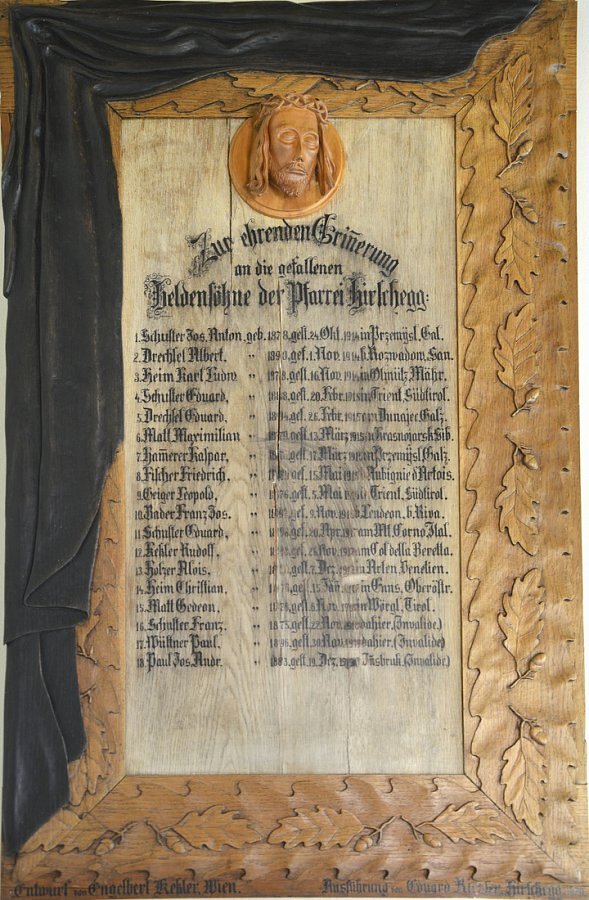 Zur ehrenden Erin̄erung
an die gefallenen
Heldensöhne der Pfarrei Hirschegg:
1. Schuster Jos. Anton geb. 1878, gest. 24. Okt. 1914 in Przemysl, Gal.
2. Drechsel Albert. " gef. 1. Nov. 1914 b. Rozwadow, San.
3. Heim Karl Ludw. " 1878, gest. 16. Nov. 1914 in Olmütz Mähr.
4. Schuster Eduard, " gest. 20. Febr. 1915 in Trient, Südtirol.
5. Drechsel Eduard. " gef. 26. Febr. 1915 am Dunajec Galz.
6. Matt Maximilian " gest. 13. März in Krasnojarsk Sib.
7. Ham̄erer Kaspar, " gest. 17. März in Przemysl, Galz.
8. Fischer Friedrich, " gef. 15. Mai 1915 Aubignie d'Artois.
9. Geiger Leopold, " gest. 5. Mai Trient, Südtirol.
10. Bader Franz Jos. " gest. 9. Nov. b. Riva.
11. Schuster Eduard, " gest. 20. Apr. am Mt. Corno, Ital.
12. Keßler Rudolf, " gest. 25. Nov. am Col della Beretta.
13. Holzer Alois. " gest. 7. Dez. in Arten Venetien.
14. Heim Christian, " gest. 15. Jän. in Enns, Oberöstr.
15. Matt Gedeon, " gest. 6. Nov. in Wörgl, Tirol.
16. Schuster Franz. " 1875, gest. 22. Nov. dahier, (Invalide)
17. Wüstner Paul. " 1896, gest. 30. Nov. dahier. (Invalide)
18. Paul Jos. Andr. " 1883, gest. 19. Dez. Insbruk, (Invalide)
Entwurf von Engelbert Keßler, Wien. Ausführung von Eduard Hirschegg